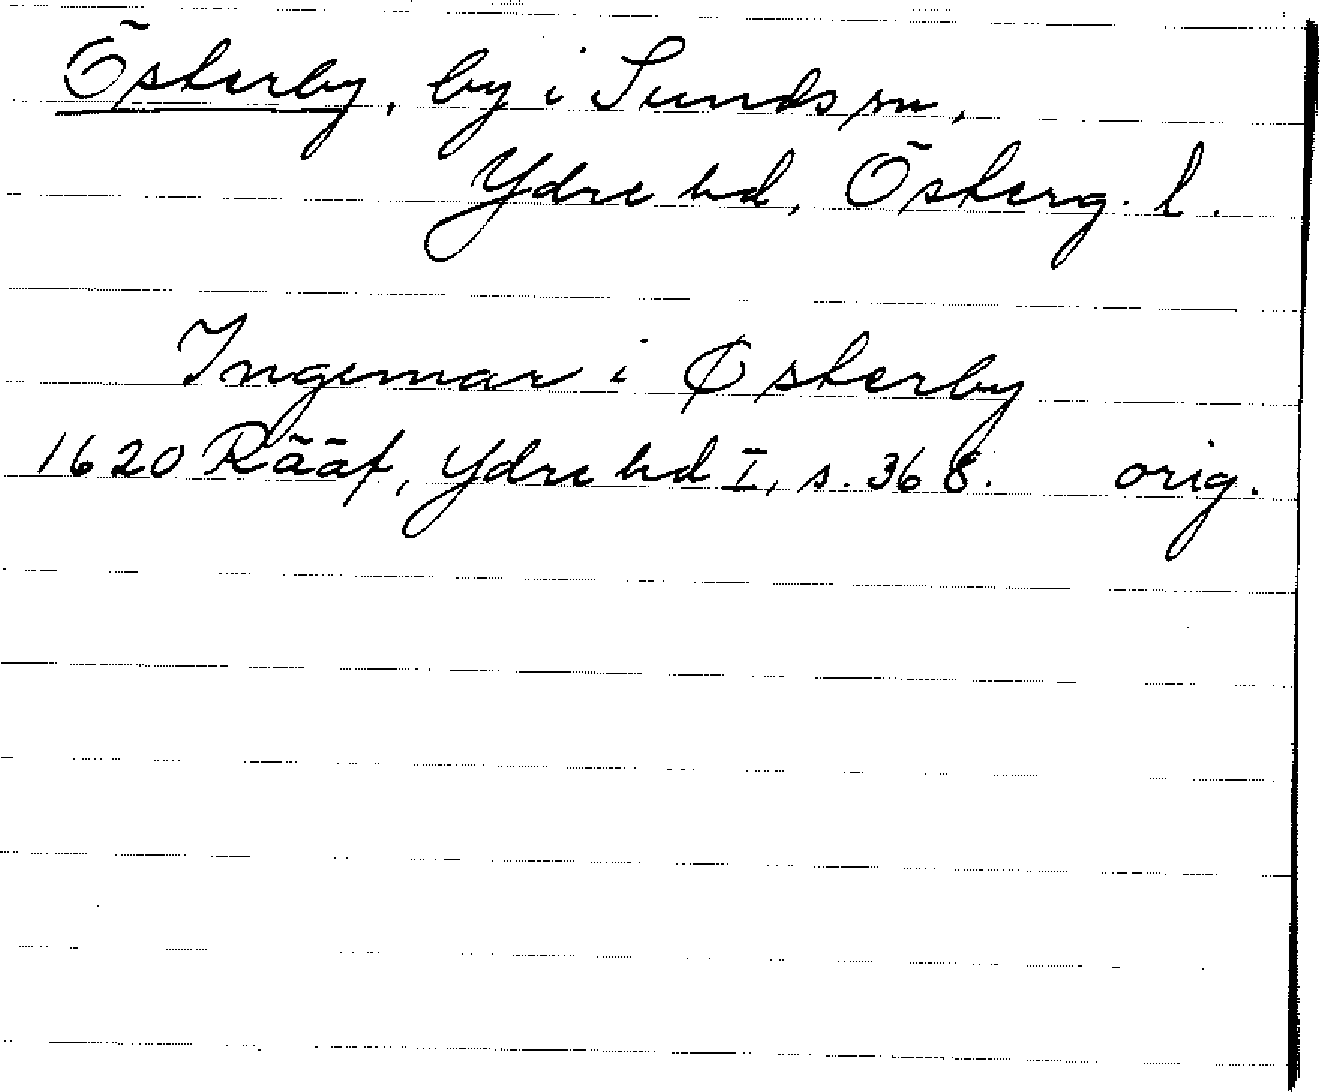 Österby, by i Sunds sn,
Ydre hd, Österg. l.
Ingemar i Østerby
1620 Rääf, Ydre hd I, s. 368. orig.